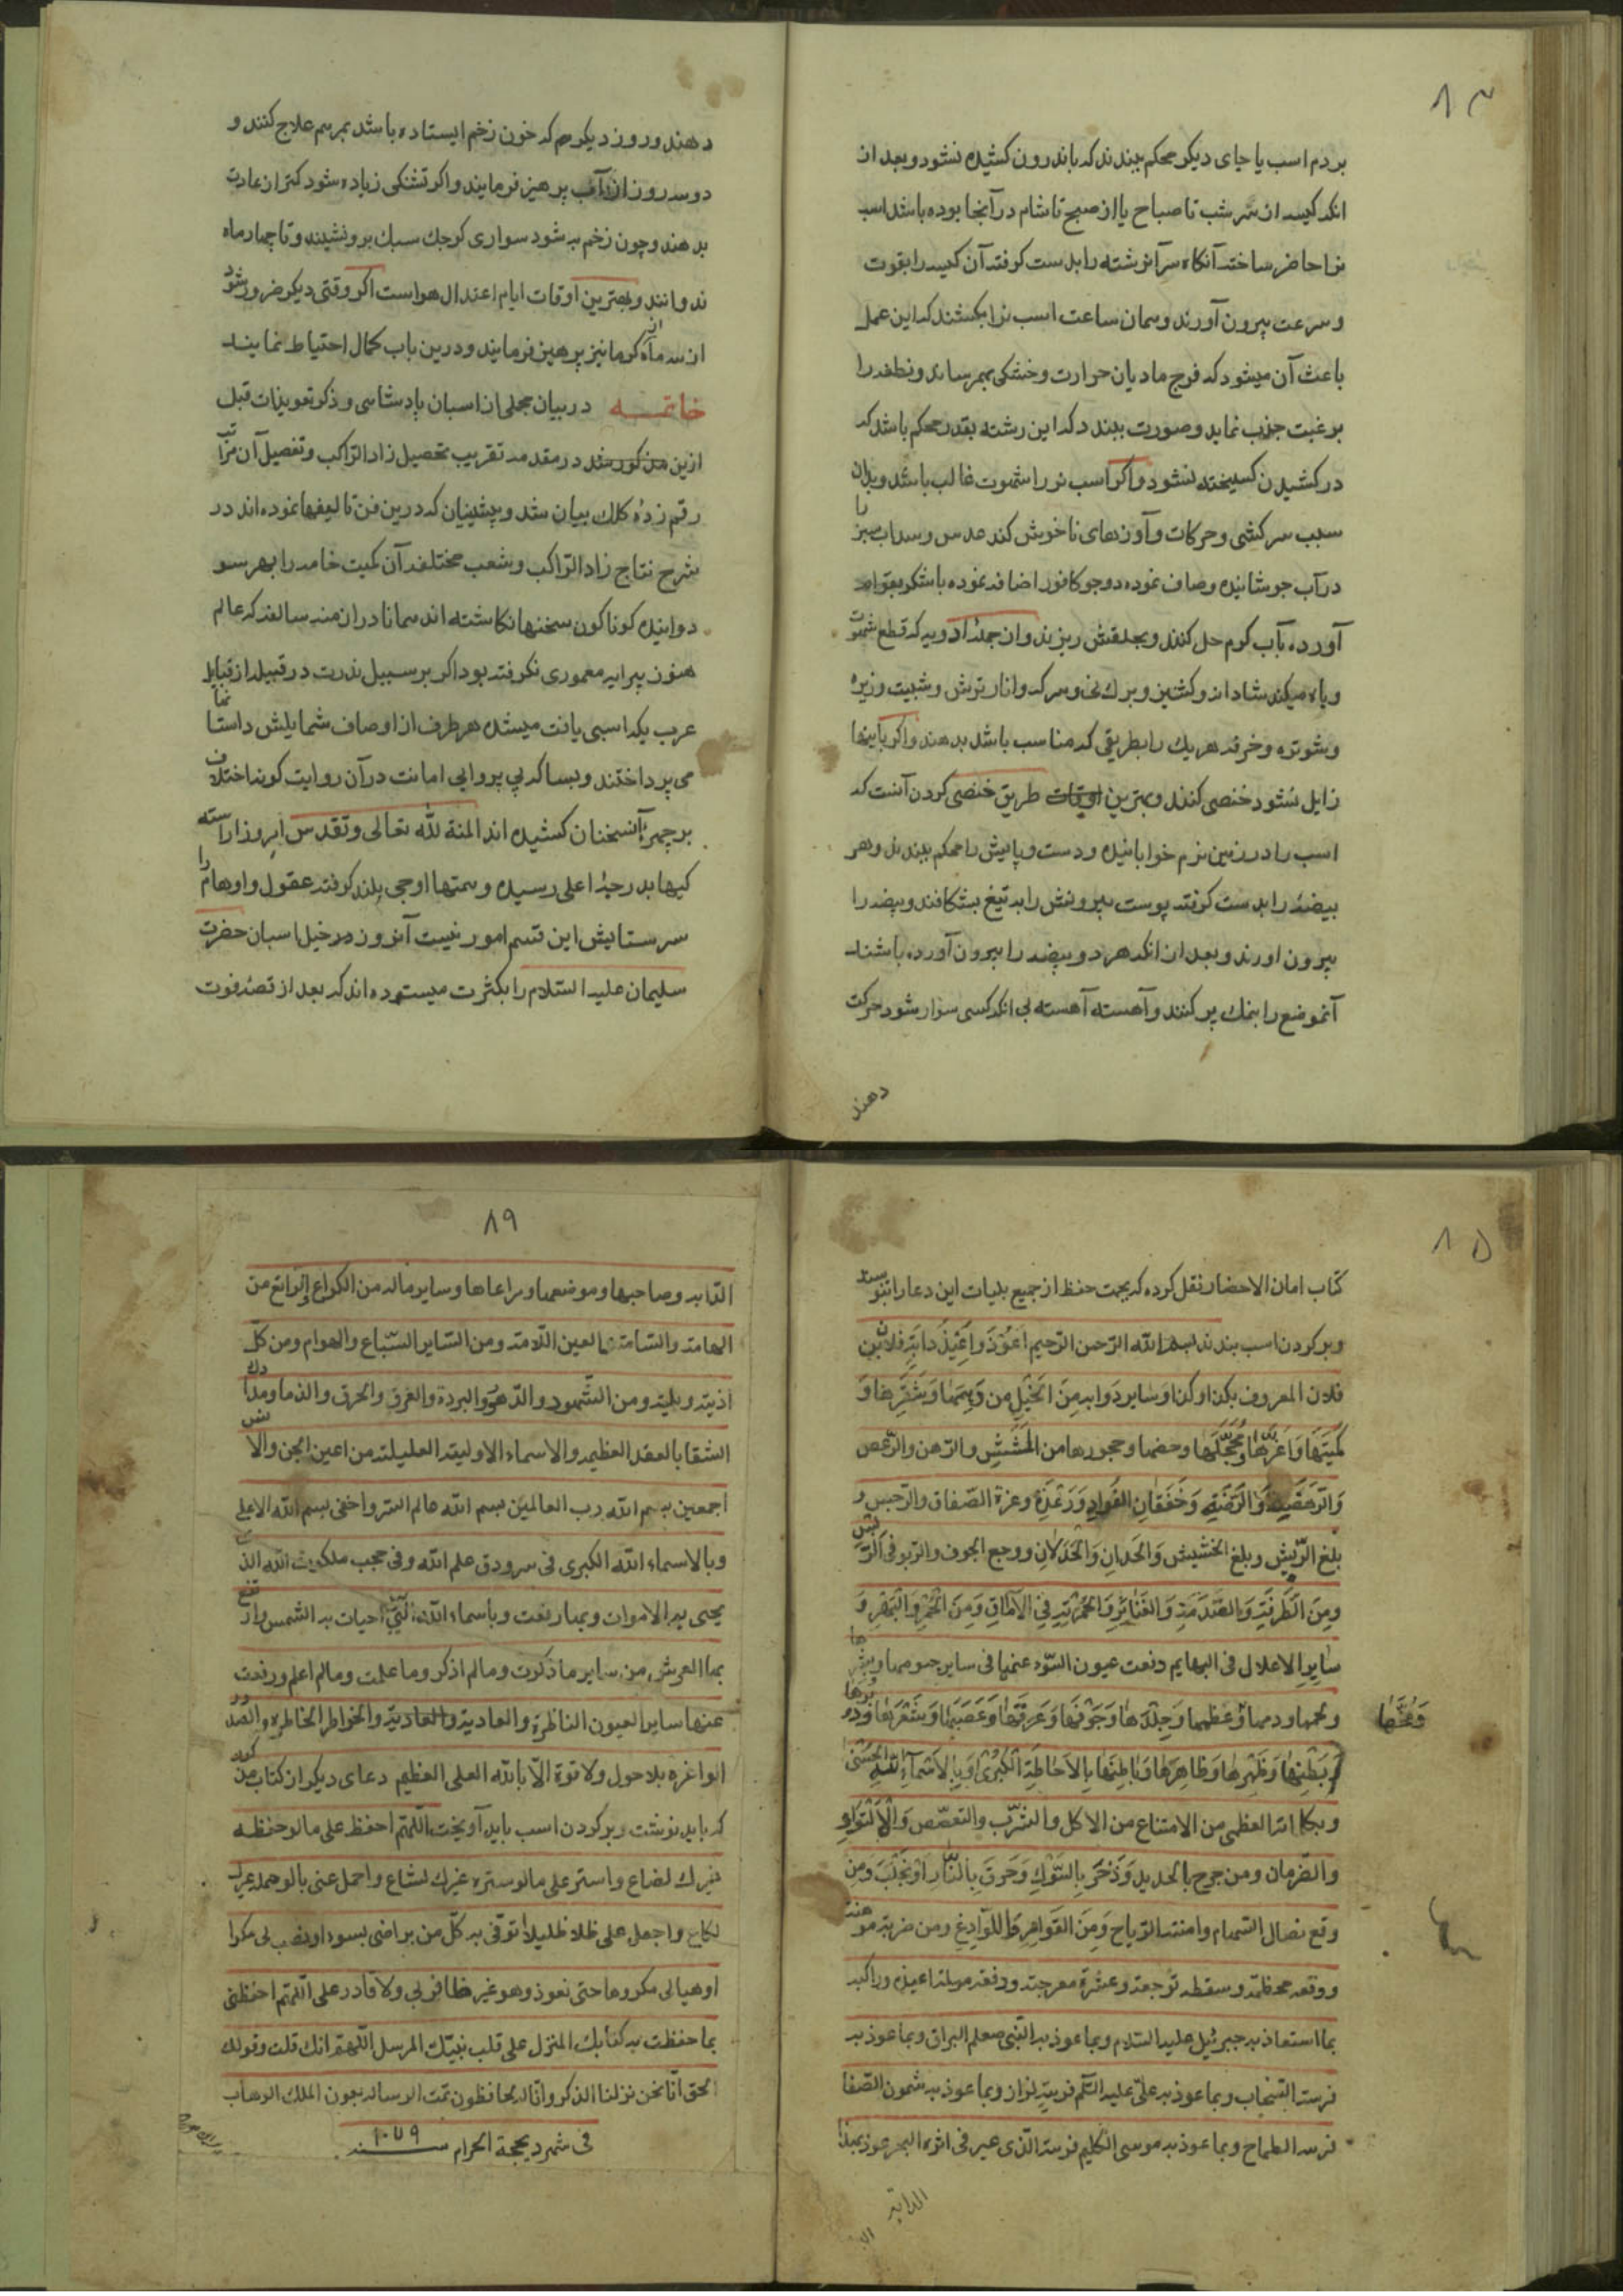 ۸۳
بردم اسب یا جای دیکر محکم ببندند که باندرون کشیده نشود و بعد از
انکه کیسه از سر شب تا صباح یا از صبح تا شام در آنجا بوده باشد اسب
نرا حاضر ساخته آنکاه سر آنرشته را بدست کرفته آن کیسه را بقوت
و سرعت بیرون آورند و همان ساعت اسب نرا بکشند که این عمل
باعث آن میشود که فرج مادیان حرارت و خشکی بهم رساند و نطفه را
برغبت جذب نماید و صورت ببندد که این رشته بقدر محکم باشد که
در کشیدن کسیخته نشود و اکر اسب نر را شهوت غالب باشد و بدان
سبب سرکشی و حرکات و آوازهای ناخوش کند عدس و سداب سبز را
در آب جوشانیده و صاف نموده دو جو کافور اضافه نموده باشکر بقوام
آورده بآب کرم حل کنند و بحلقش ریزند و از جمله ادویه که قطع شهوت
و باه میکند شادانه و کشنیز و برک و سرکه و انار ترش و شبیت و زیره
و شوتره و خرفه هر یک را بطریقی که مناسب باشد بدهند و اکر باینها
زایل نشود خنصی کنند و بهترین اوقات طریق خنصی کردن آنست که
اسب را در زمین نرم خوابانیده و دست و پایش را محکم ببندند و هر
بیضه را بدست کرفته پوست بیرونش را بد تیغ بشکافند و بیضه را
بیرون اورند و بعد از انکه هر دو بیضه را بیرون آورده باشند
آنموضع را بنمک پر کنند و آهسته آهسته بی انکه کسی سوار شود حرکت
دهند
دهند و روز دیکر هم که خون زخم ایستاده باشد بمرهم علاج کنند و
دو سه روز از آب پرهیز فرمایند و اکر تشنکی زیاده شود کمتر از عادت
بدهند و چون زخم به شود سواری کوچک سبک برو نشیند و تا چهار ماه
ندوانند و بهترین اوقات ایام اعتدال هواست اکر وقتی دیکر ضرور شود
از سه ماه کرما نیز پرهیز فرمایند و درین باب کمال احتیاط نمایند
خاتمه در بیان مجملی از اسبان پادشاهی و ذکر تعویذات قبل
ازین مذکور شد در مقدمه تقریب تحصیل زاد الراکب و تفصیل آن مراتب
رقم زدهٔ کلک بیان شد و پیشینیان که درین فن تالیفها نموده اند در
شرح نتاج زاد الراکب و شعب مختلفه آن کمیت خامه را بهر سو
دوانیده کوناکون سخنها نکاشته اند همانا در ازمنه سالفه که عالم
هنوز پیرایه معموری نکرفته بود اکر بر سبیل ندرت در قبیله از قبایل
عرب یکه اسبی یافت میشده هر طرف از اوصاف شمایلش داستانها
می پرداختند و بسا که بی پروایی امانت در آن روایت کونه اختلاف
بر چهره آنسخنان کشیده اند المنة لله تعالی و تقدس امروز اراسته
کیها بدرجهٔ اعلی رسیده و همتها اوجی بلند کرفته عقول و اوهام را
سر ستایش این قسم امور نیست آنروز در خیل اسبان حضرت
سلیمان علیه السلام را بکثرت میستوده اند که بعد از قصهٔ فوت
۸۵
کتاب امان الاحضار نقل کرده که بجهت حفظ از جمیع بلیات این دعا را بنویسند
و بر کردن اسب بندند بسم الله الرحمن الرحیم اعوذ و اعیذ دابة فلان بن
فلان المعروف بکذا و کذا و سایر دوابه من الخیل من دهمها و شقرها و
کمیتها و اغرها و محجلها و حصنها و حجورها من المشش والرهن والرعص
والرهصة والرضة وخفقان الفواد ورعدة وعزة الصفاق والرجس و
بلغ الریش وبلغ الخشیش والحدان والخذلان ووجع الجوف والربو فی الریش
ومن الطرفة والصدمة والعثار والحمرة فی الاماق ومن الحمر والبهر و
سایر الاعلال فی البهایم دفعت عیون السوء عنها فی سایر جسومها وبشرها
ولحمها ودمها وعظمها وجلدها وجوفها وعرقها وعصبها وشعرها ووبرها
ومخها
وبطنها وظهرها وظاهرها وباطنها بالاحاطة الکبری وبالاسماء الله الحسنی
وبکلماته العظمی من الامتناع من الاکل والشرب والتعصص والالتواء
والضربان ومن جرح بالحدید وخز بالشوک وحرق بالنار او مخلب ومن
وقع نصال السهام وامنته الرماح ومن القوامر واللوادغ ومن ضربة موهنة
ووقعه محطمة وسقطه توجعه وعثرة معرجة ودفعه مهیلة اعیذه وراکبه
بما استعاذ به جبرئیل علیه السلام وبما عوذ به النبی صعلم البراق وبما عوذ به
فرسه السحاب وبما عوذ به علی علیه السلم فرسه لزاز وبما عوذ به شمعون الصفا
فرسه الطماح وبما عوذ به موسی الکلیم فرسه الذی عبر فی اثره البحر عوذ بهذا
الدابة
۸۶
الدابه وصاحبها وموضعها ومراعاها وسایر ماله من الکراع والراتع من
الهامة والسامة العین اللامة ومن السایر السباع والهوام ومن کل
اذیة وبلیة ومن الشهود والدهور والبردة والغرق والحرق والذما ومدارک
الشقا بالعقد العظیمة والاسماء الاولیة العلیلة من اعین الجن والانس
اجمعین بسم الله رب العالمین بسم الله عالم السر واخفی بسم الله الاعلی
وبالاسماء الله الکبری فی سرودق علم الله وفی حجب ملکوت الله الذی
یحیی به الاموات وبها رفعت وبأسماء الله التی احیات به الشمس وارتفع
بها العرش من سایر ما ذکرت وما لم اذکر وما علمت وما لم اعلم ورفعت
عنها سایر العیون الناظرة والعادیة والعادیة والخواطر الخاطره والصدور
الواغره بلا حول ولا قوة الا بالله العلی العظیم دعای دیکر از کتاب مذکور
که باید نوشت و بر کردن اسب باید آویخت اللهم احفظ علی ما لو حفظه
غیرک لضاع واستر علی ما لو ستره غیرک لشاع واحمل عنی ما لو حمله غیرک
لکاع واجعل علی ظلا ظلیلا اتوقی به کل من براضی بسوء او نصب لی مکرا
او هیا لی مکروها حتی نعوذ وهو غیر ظافر لی ولا قادر علی اللهم احفظنی
بما حفظت به کتابک المنزل علی قلب نبیک المرسل اللهم انک قلت وقولک
الحق انا نحن نزلنا الذکر وانا له لحافظون تمت الرساله بعون الملک الوهاب
فی شهر دیحجة الحرام سنه ۱۰۷۹